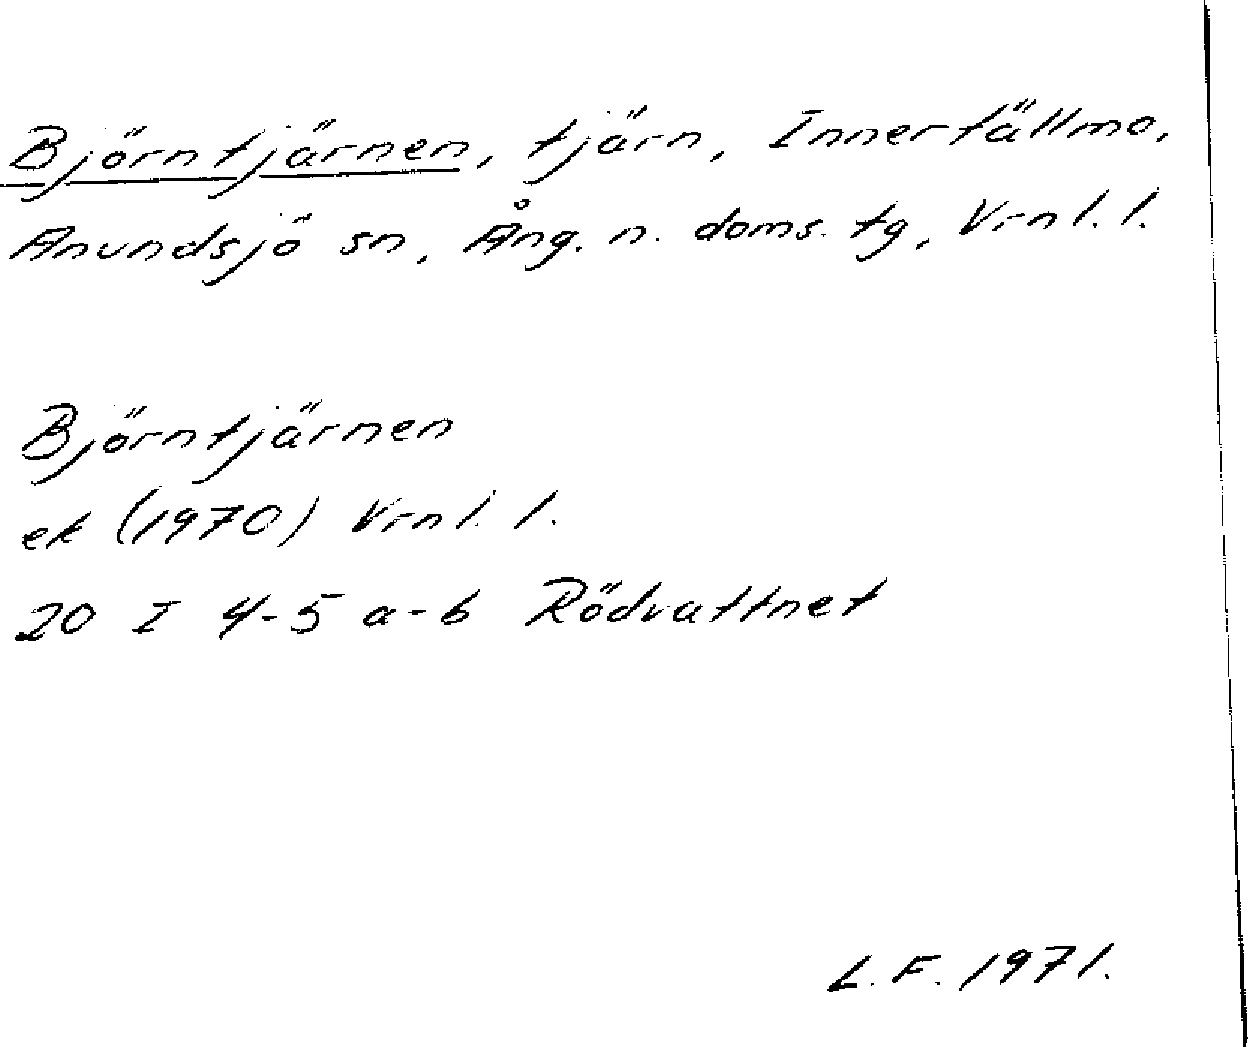 Björntjärnen, tjärn, Innertällmo,
Anundsjö sn, Ång. n. doms. tg, Vrnl. l.
Björntjärnen
ek (1970) Vrnl. l.
20 I 4-5 a-b Rödvattnet
L. F. 1971.